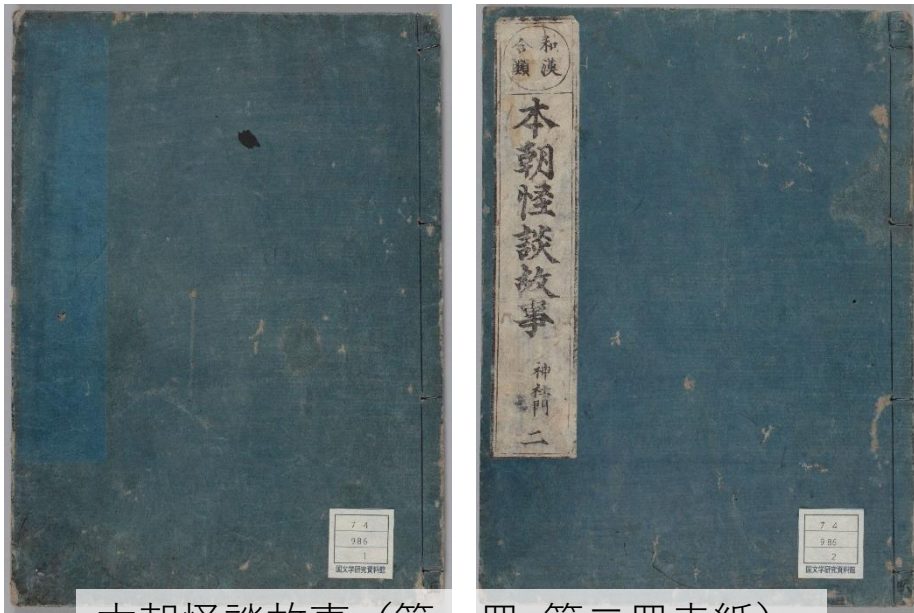 7 4
986
1
国文学研究資料館
和漢
合類
本朝怪談故事
神社門
二
7 4
986
2
国文学研究資料館
本朝怪談故事（第一冊・第二冊表紙）